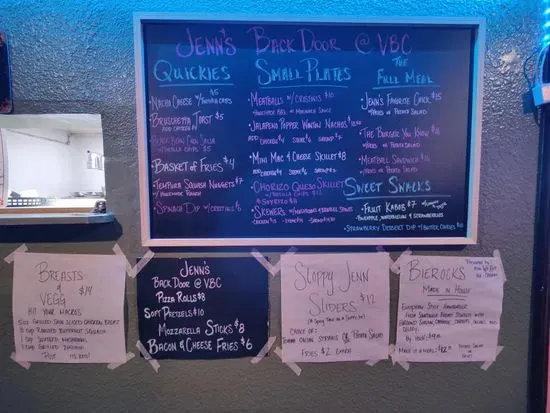 Jenn's Back Door @ VBC
Quickies
Nacha Cheese w/ Tortilla Chips $5
Bruschetta Toast $5
Add Chicken $4
Black Bean Taco Salsa
w/ Tortilla Chips $5
Basket of Fries $4
Tempura Squash Nuggets $7
w/ Homemade Ranch
Spinach Dip w/ Crostinis $6
Small Plates
Meatballs w/ Crostinis $10
Jalapeno Popper Wonton Nachos
Add Chicken $4 Steak $6 Shrimp $5
Mini Mac & Cheese Skillet $8
Add Chicken $4 Steak $6 Shrimp $5
Chorizo Queso Skillet
w/ Tortilla Chips
Skewers w/
Chicken Shrimp Steak
The
Full Meal
Jenn's Favorite Chick $15
Fries or Potato Salad
The Burger You Know $16
Fries or Potato Salad
Meatball Sandwich $16
Fries or Potato Salad
Sweet Snacks
Fruit Kabobs $7
Pineapple, Watermelon & Strawberries
Strawberry Dessert Dip w/ Butter Cookies $10
Breasts
&
Vegg $14
Hit Your Macros
5oz Grilled Skin Seared Chicken Breast
1 cup Roasted Butternut Squash
1 cup Sauteed Mushrooms
1 cup Grilled Zucchini
Jenn's
Back Door @ VBC
Pizza Rolls $8
Soft Pretzels $10
Mozzarella Sticks $8
Bacon & Cheese Fries $6
Sloppy Jenn
Sliders $12
(A Spicy Take on a Sloppy Joe)
Choice of:
Tobacco Onion Strings or Potato Salad
Fries $2 Extra
Bierocks
Made in House
European Style Handburger
Ground Sirloin, Cabbage, Carrots, Onions, and
Make it a Meal:
Potato Salad
or
Fries